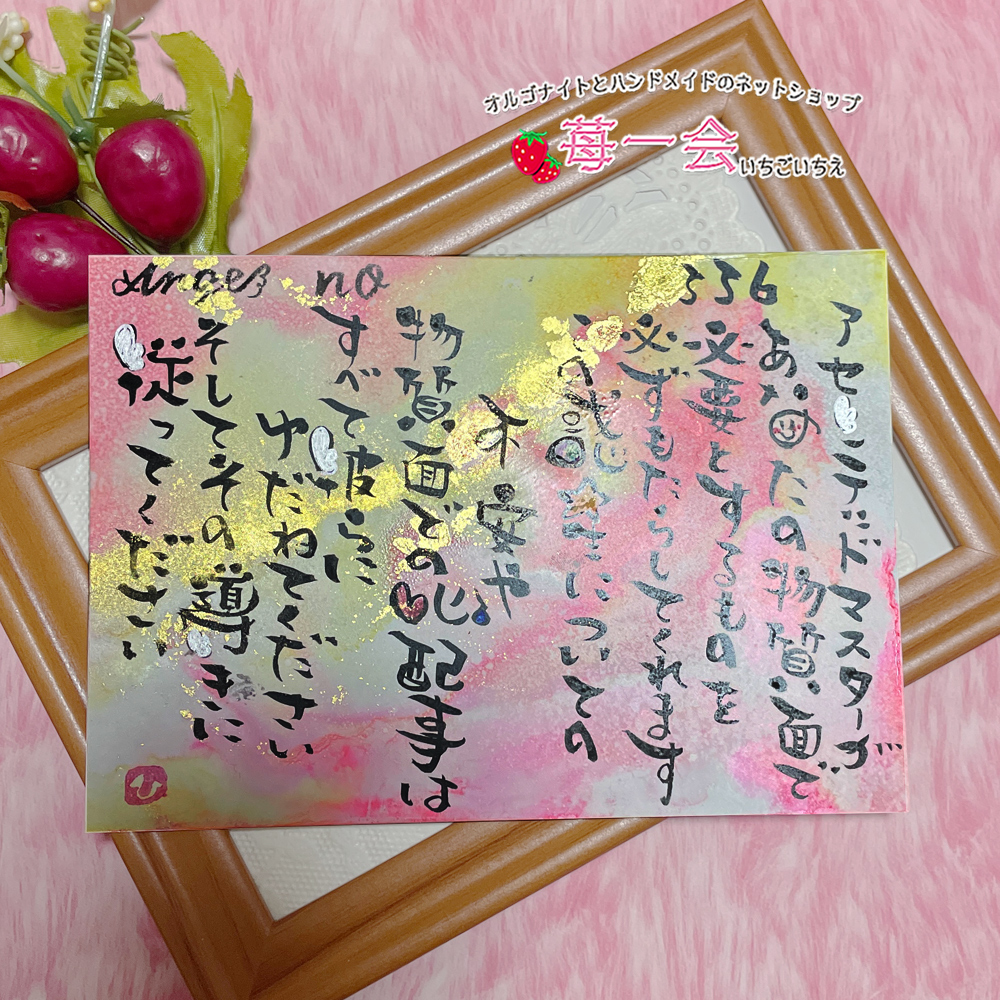 オルゴナイトとハンドメイドのネットショップ
苺一会
いちごいちえ
Angel no 336
アセンデッドマスターが
あなたの物質面で
必要とするものを
必ずもたらしてくれます
についての
不安や
物質面での心配事は
すべて彼らに
ゆだねてください
そしてその導きに
従ってください
ひ